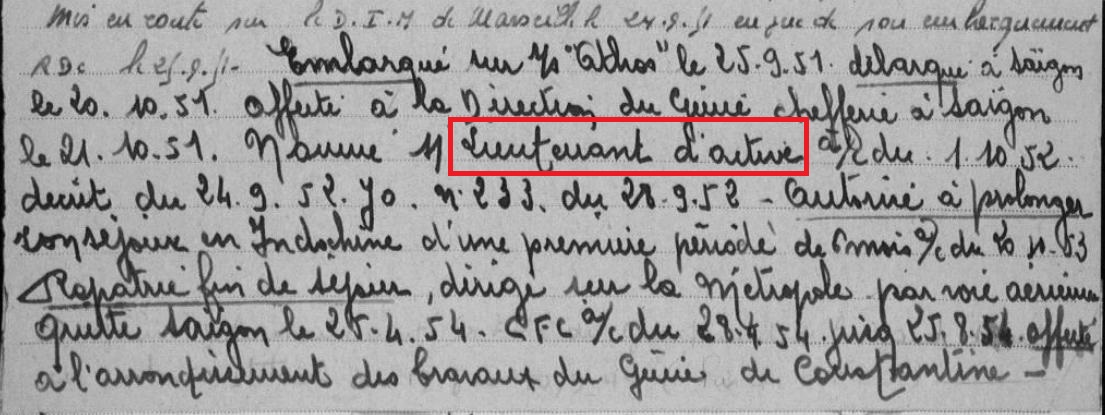 Mis en route sur le D.I.M de Marseille le 24.9.51 en vue de son embarquement
RDC le 25.9.51- Embarqué sur s/s "Athos" le 25.9.51. débarqué à Saïgon
le 20.10.51. affecté à la Direction du Génie chefferie à Saïgon
le 21.10.51. Nommé Lieutenant d'active a/c du 1.10 52.
décret du 24.9.52. JO. n° 233. du 28.9.52 - Autorisé à prolonger
son séjour en Indochine d'une première période de 6 mois a/c du 20 . 53
Rapatrié fin de séjour, dirigé sur la Métropole par voie aérienne
quitte Saïgon le 25.4.54. CFC a/c du 28.4.54. jusq 25.8.54 affecté
à l'arrondissement des travaux du Génie de Constantine -